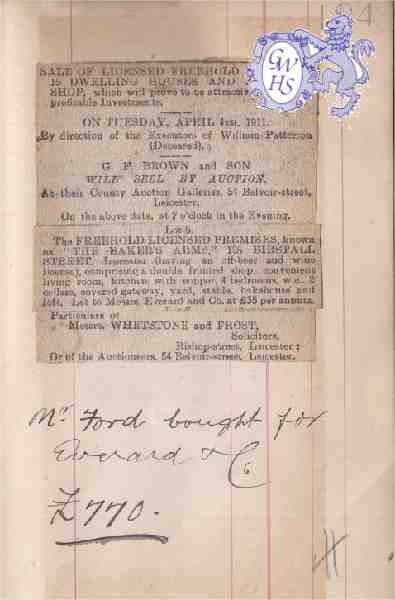 184
GWHS
SALE OF LICENSED FREEHOLD
15 DWELLING HOUSES AND
SHOP, which will prove to be attractive
profitable Investments.
ON TUESDAY, APRIL 4th, 1911.
By direction of the Executors of William Patterson
(Deceased).
G. F. BROWN and SON
WILL SELL BY AUCTION,
At their County Auction Galleries, 54 Belvoir-street,
Leicester,
On the above date, at 7 o'clock in the Evening.
Lot 5.
The FREEHOLD LICENSED PREMISES, known
as "THE BAKER'S ARMS," 75 BIRSTALL
STREET, Leicester (having an off-beer and wine
license), comprising a double fronted shop, convenient
living room, kitchen with copper, 4 bedrooms, w.c., 2
cellars, covered gateway, yard, stable, bakehouse and
loft. Let to Messrs. Everard and Co. at £35 per annum.
Particulars of
Messrs. WHETSTONE and FROST,
Solicitors,
Bishop-street, Leicester;
Or of the Auctioneers, 54 Belvoir-street, Leicester.
Mr Ford bought for
Everard & Co
£770.